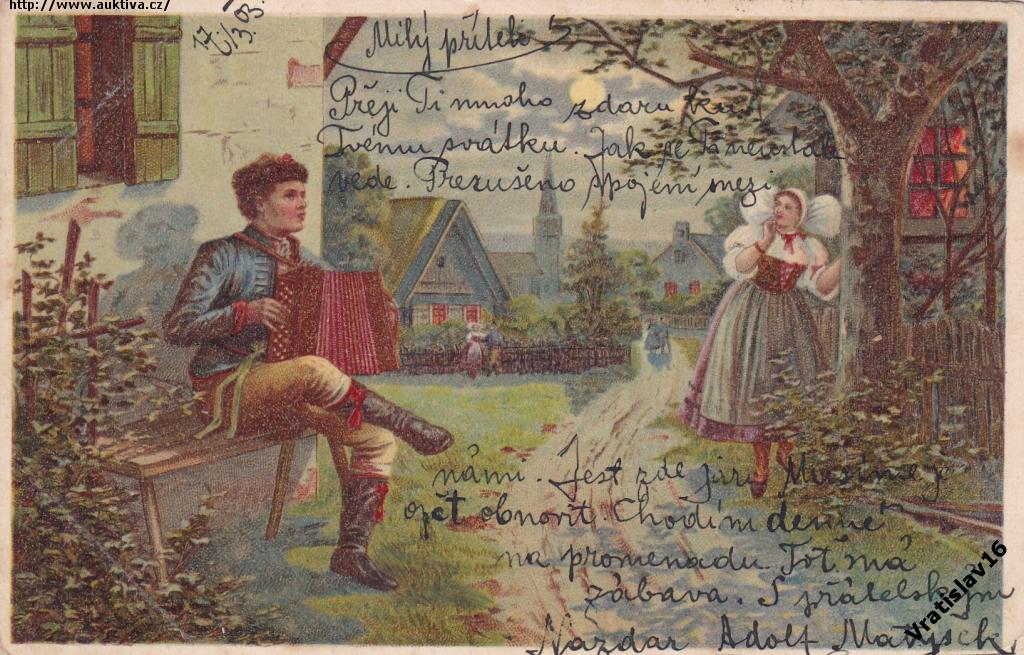 http://www.auktiva.cz/
17/VI 03.
Milý příteli!
Přeji Ti mnoho zdaru ku
Tvému svátku. Jak se Ti
vede. Přerušeno spojení mezi
námi. Jest zde Musíme j
opět obnovit. Chodím denně
na promenadu Toť má
zábava. S přátelským
Nazdar Adolf Matýsek
Vratislav16